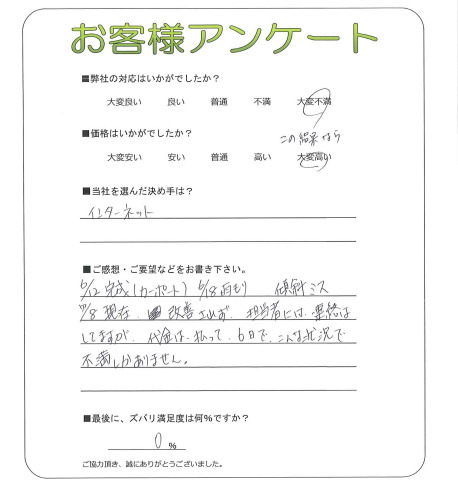 お客様アンケート
■弊社の対応はいかがでしたか？
大変良い　良い　普通　不満　大変不満
■価格はいかがでしたか？
この結果なら
大変安い　安い　普通　高い　大変高い
■当社を選んだ決め手は？
インターネット
■ご感想・ご要望などをお書き下さい。
6/12 完成(カーポート) 6/18 雨もり　傾斜ミス
8 現在、改善されず、担当者には、連絡は
してますが、代金は、払って、6日で、こんな状況で
不満しかありません。
■最後に、ズバリ満足度は何％ですか？
0 %
ご協力頂き、誠にありがとうございました。